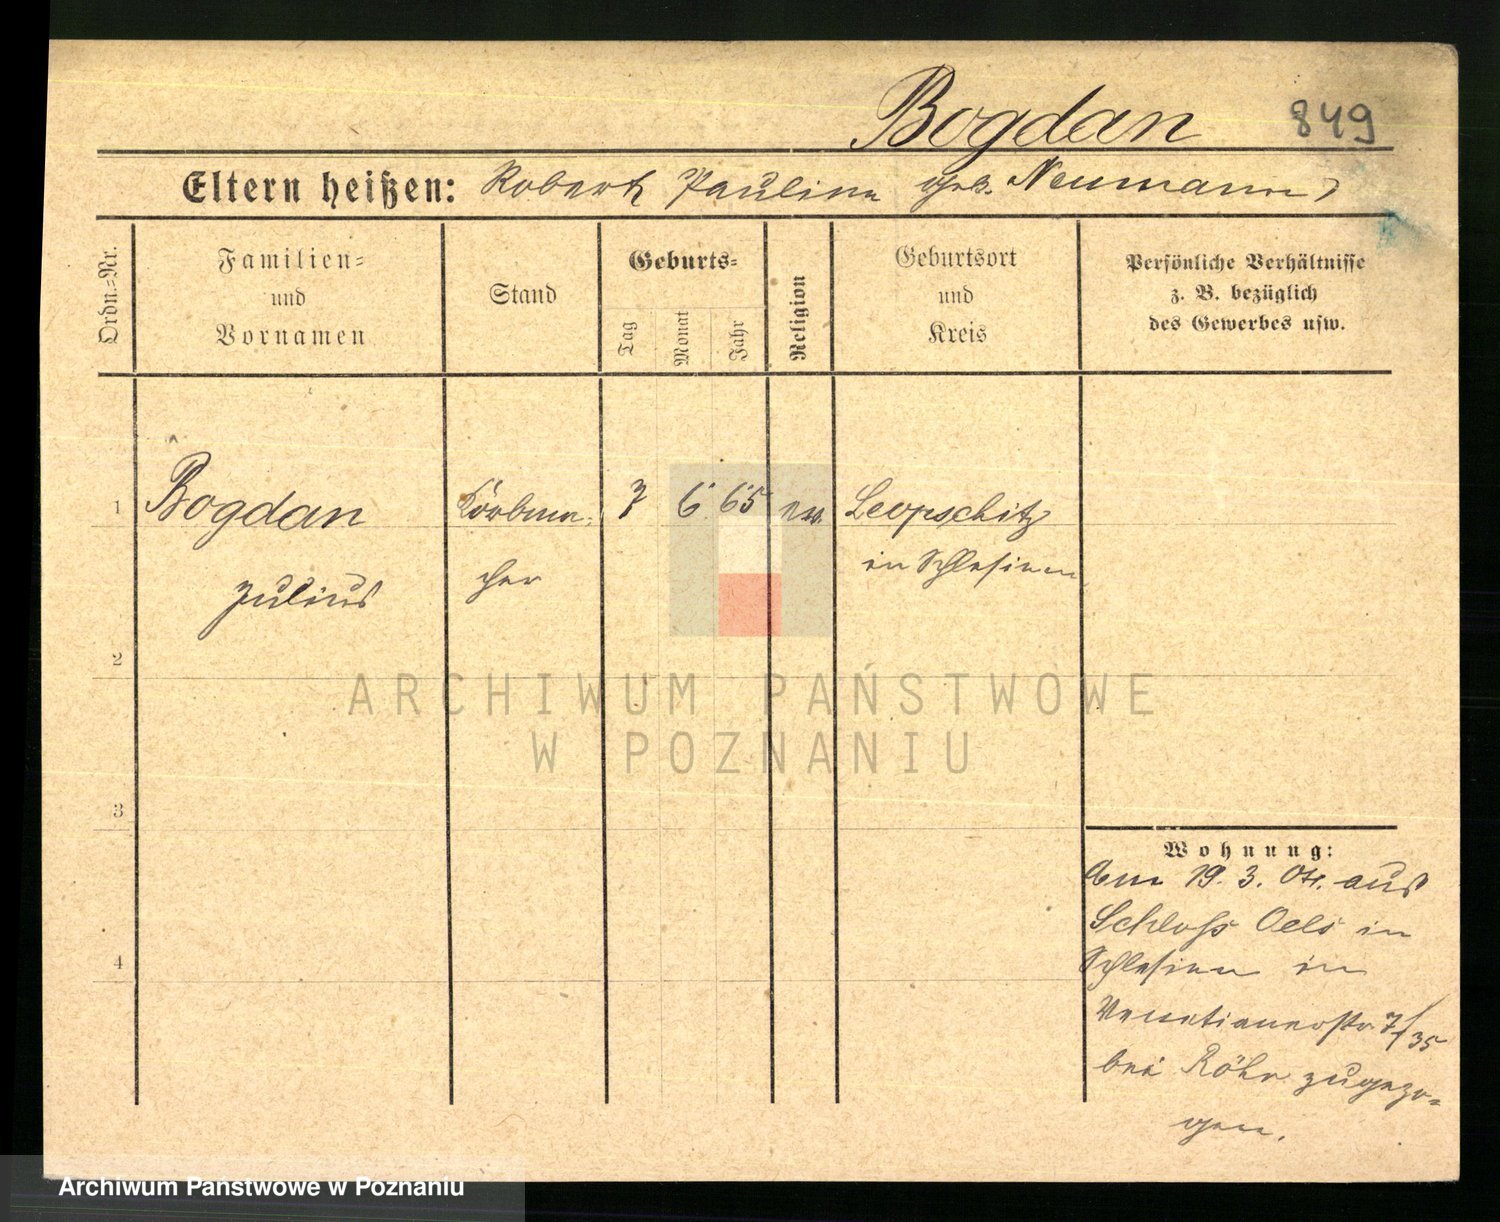 Bogdan 849
Eltern heißen: Robert Pauline geb. Neumann
Ordn.=Nr.
Familien=
und
Vornamen
Stand
Geburts=
Tag
Monat
Jahr
Religion
Geburtsort
und
Kreis
Persönliche Verhältnisse
z. B. bezüglich
des Gewerbes usw.
1 Bogdan Korbma- 7 6. 65 ev. Leopschitz
Julius cher in Schlesien
2
3
4
Wohnung:
Am 19. 3. aus
Schloss Oels in
Schlesien in
Venetianerstr. 7/35
bei Röhr zugezo=
gen.
ARCHIWUM PAŃSTWOWE
W POZNANIU
Archiwum Państwowe w Poznaniu